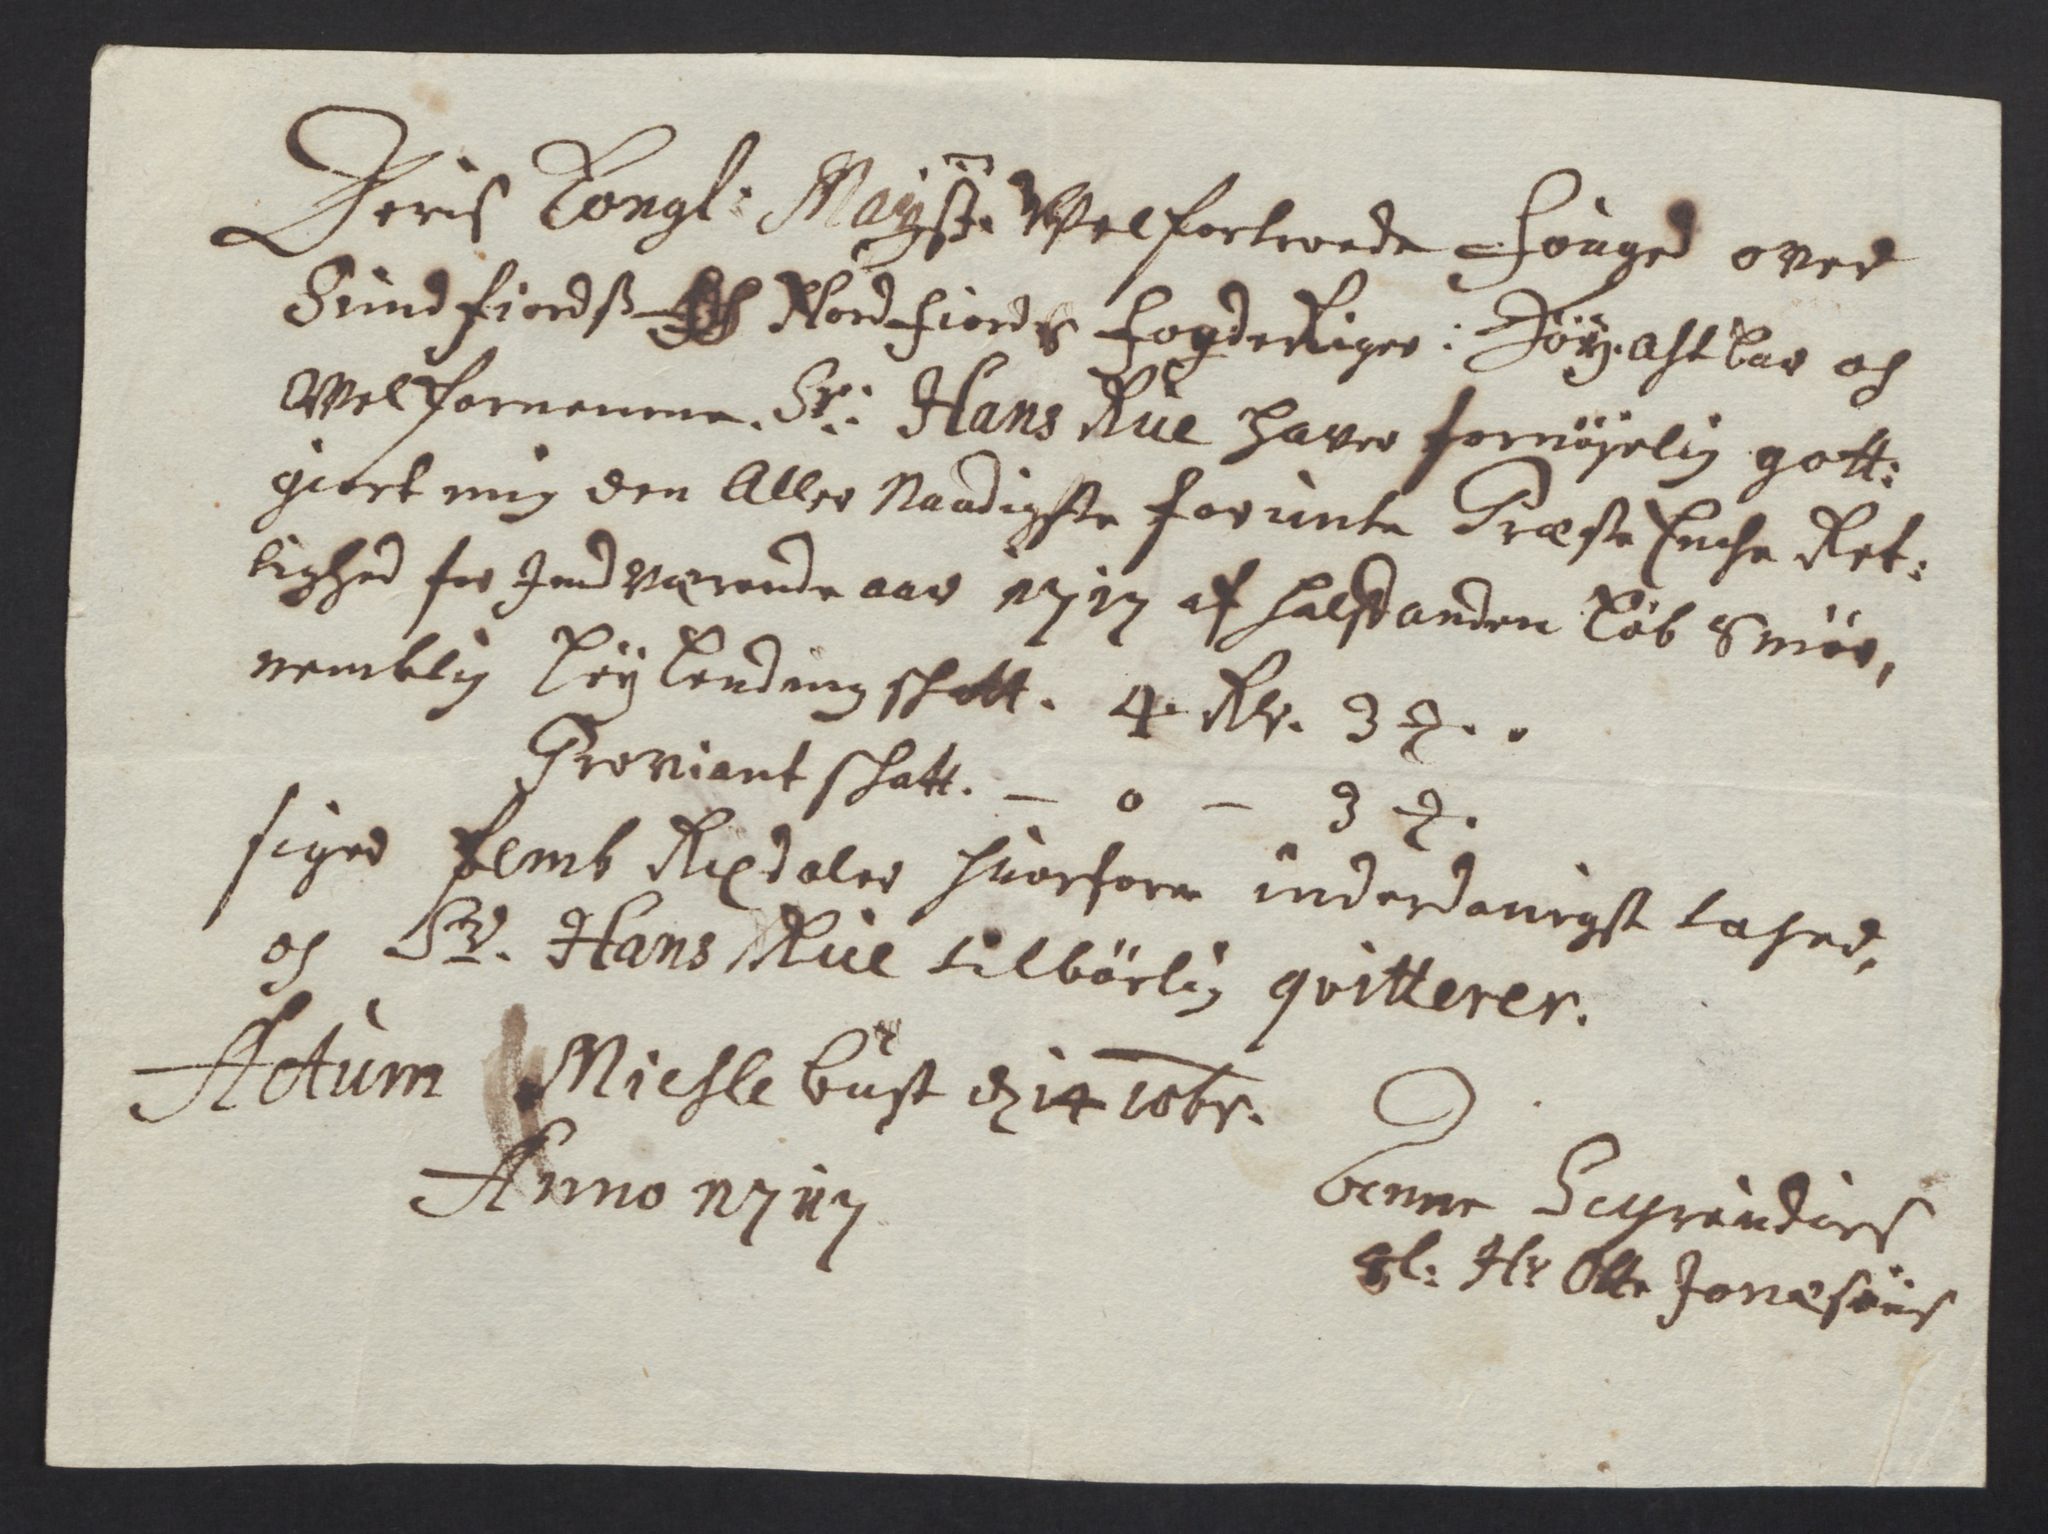 Deris Kongl: Mayst: Welfortroede Fouged over
Sundfiords og Nordfiords fogderiger: Höy.acht bar og
Welfornemme. Sr: Hans Rüe haver fornöjelig gott:
giort mig den Aller Naadigste forunte Præste Enche Ret:
tighed for Indværende aar 1717 af halfdanden Löb Smör,
nemblig Leylending schatt. 4 Rdr. 3
Proviant schatt. — 0 — 3
siger femb Rixdaler hvorfore underdanigst tacher,
og Sr. Hans Rüe tilbörlig qvitterer.
Actum Michlebust d 14 10br.
Anno 1717
Sl: Hr Otte Jonæsöns